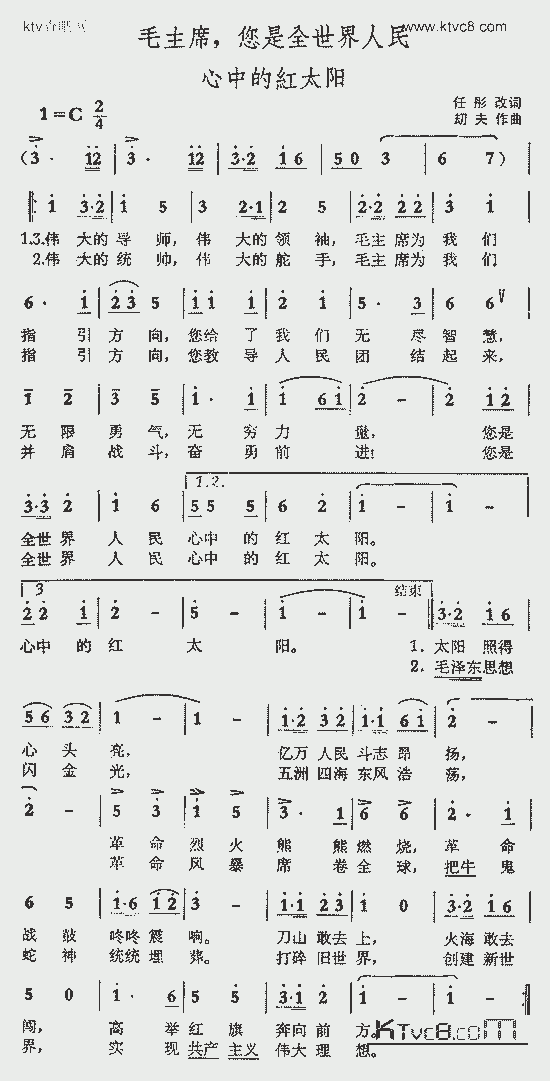 ktv
www.ktvc8.com
毛主席，您是全世界人民
心中的紅太阳
1=C 2/4
任彤 改词
劫夫 作曲
(3· 12 | 3· 12 | 3·2 16 | 50 3 | 6 7)
1 3·2 | 1 5 | 3 2·1 | 2 5 | 2·2 22 | 3 1
1.3.伟 大的 导 师，伟 大的 领 袖，毛主 席为 我 们
2.伟 大的 统 帅，伟 大的 舵 手，毛主 席为 我 们
6· 1 | 23 5 | 11 1 | 2 1 | 5· 3 | 6 6
指 引 方 向，您给 了 我 们 无 尽 智 慧，
指 引 方 向，您教 导 人 民 团 结 起 来，
1 2 | 3 5 | 1· 1 | 1 61 | 2 - | 2 12
无 限 勇 气，无 穷 力 量， 您是
并 肩 战 斗，奋 勇 前 进！ 您是
1.2.
3·3 2 | 1 6 | 55 5 | 6 2 | 1 - | 1 -
全世 界 人 民 心中 的 红 太 阳。
全世 界 人 民 心中 的 红 太 阳。
3 结束
22 1 | 2 - | 5 - | 1 - | 1 - | 3·2 16
心中 的 红 太 阳。 1. 太阳 照得
2. 毛泽东思想
56 32 | 1 - | 1 - | 1·2 32 | 1·1 61 | 2 -
心 头 亮， 亿万 人民 斗志 昂 扬，
闪 金 光， 五洲 四海 东风 浩 荡，
2 - | 5 3 | 1 5 | 3· 1 | 6 6 | 2· 1
革 命 烈 火 熊 熊 燃 烧，革 命
革 命 风 暴 席 卷 全 球，把牛 鬼
6 5 | 1·6 12 | 3 - | 1·1 23 | 1 0 | 3·2 16
战 鼓 咚咚 震 响。 刀山 敢去 上， 火海 敢去
蛇 神 统统 埋 葬。 打碎 旧世 界， 创建 新世
5 0 | 1· 6 | 5 5 | 3·1 2 | 1 - | 1 -
闯， 高 举 红 旗 奔向 前 方。
界， 实 现 共产 主义 伟大 理 想。
KTvc8.com